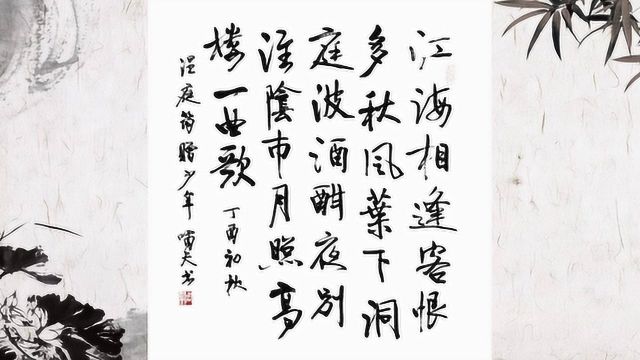 江海相逢客恨
多秋風葉下洞
庭波酒酣夜别
淮陰市月照高
楼一曲歌 丁酉初秋
温庭筠赠少年 啸夫书